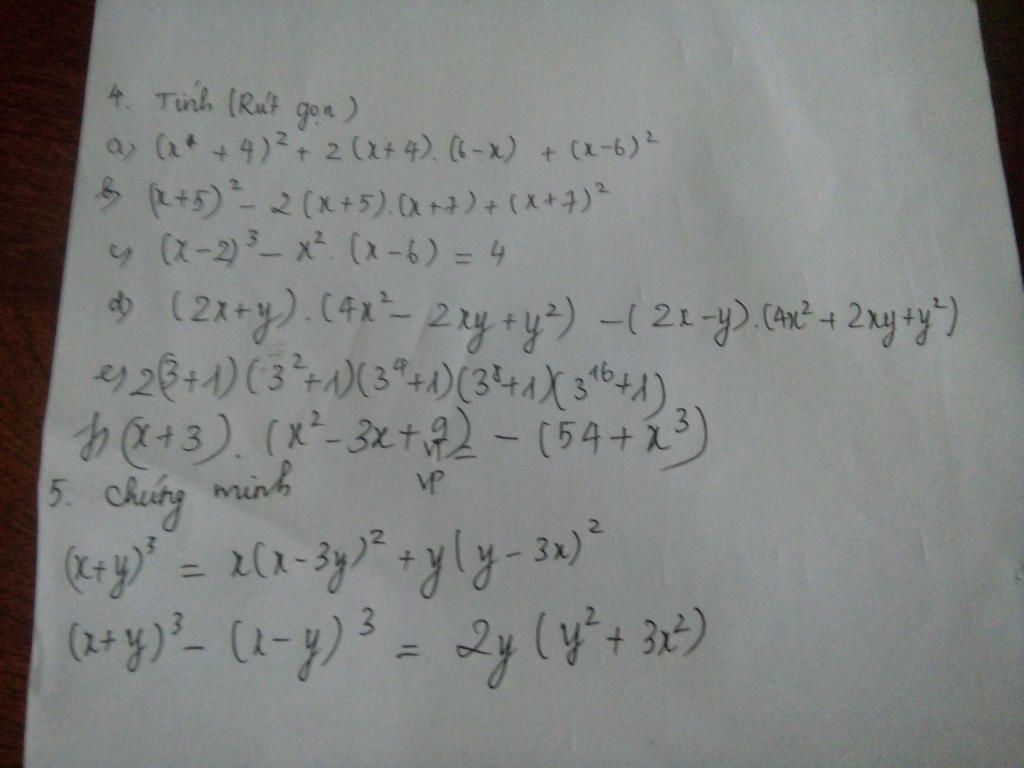 4. Tính (Rút gọn)
a, (x + 4)² + 2(x+4).(6-x) + (x-6)²
b, (x+5)² - 2(x+5).(x+7) + (x+7)²
c, (x-2)³ - x².(x-6) = 4
d, (2x+y).(4x² - 2xy + y²) - (2x-y).(4x² + 2xy + y²)
e, 2(3+1)(3²+1)(3⁴+1)(3⁸+1)(3¹⁶+1)
f, (x+3).(x² - 3x + 9) - (54 + x³)
VT
VP
5. Chứng minh
(x+y)³ = x(x-3y)² + y(y-3x)²
(x+y)³ - (x-y)³ = 2y(y² + 3x²)